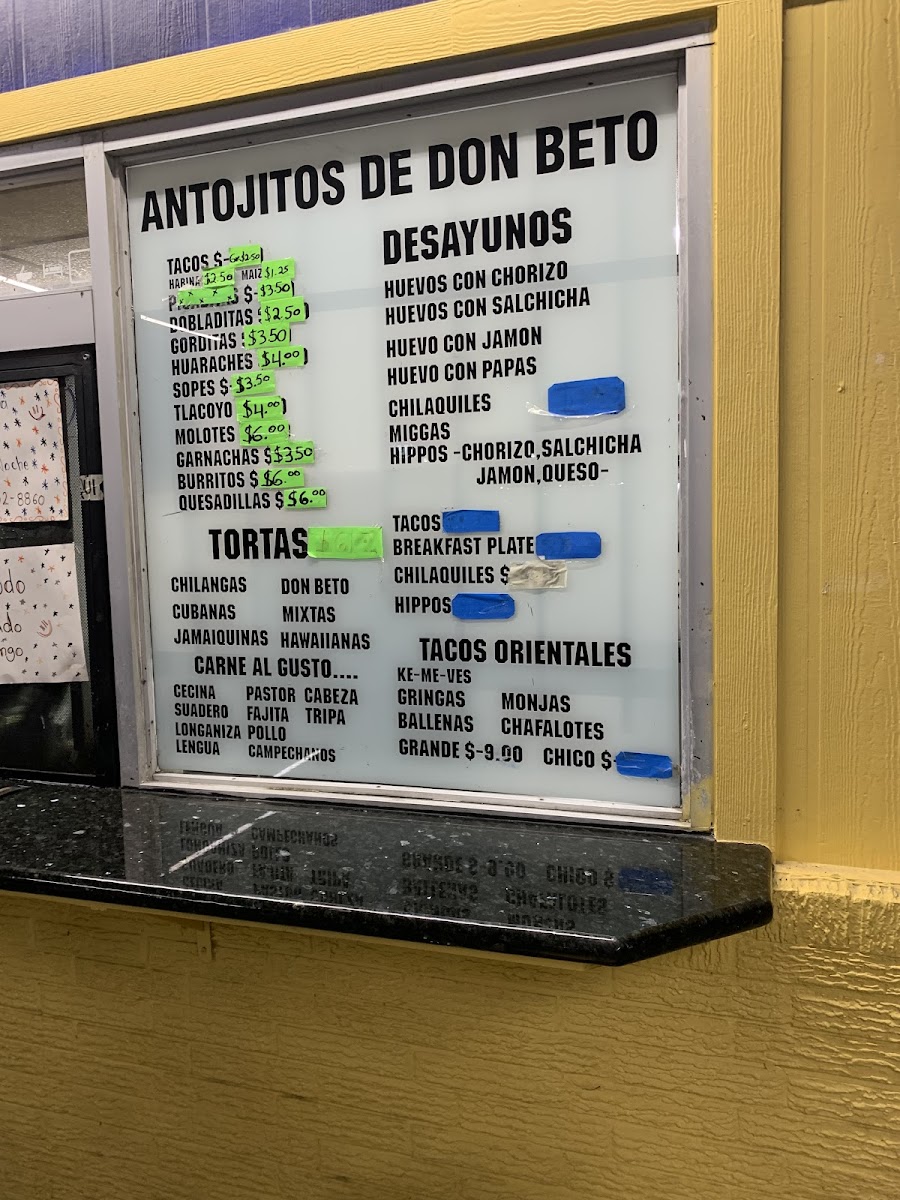 ANTOJITOS DE DON BETO
TACOS $-
HARINA $2.50 MAIZ $1.25
$- $3.50
DOBLADITAS $2.50
GORDITAS $3.50
HUARACHES $4.00
SOPES $- $3.50
TLACOYO $4.00
MOLOTES $6.00
GARNACHAS $ $3.50
BURRITOS $ $6.00
QUESADILLAS $ $6.00
TORTAS
CHILANGAS DON BETO
CUBANAS MIXTAS
JAMAIQUINAS HAWAIIANAS
CARNE AL GUSTO....
CECINA PASTOR CABEZA
SUADERO FAJITA TRIPA
LONGANIZA POLLO
LENGUA CAMPECHANOS
DESAYUNOS
HUEVOS CON CHORIZO
HUEVOS CON SALCHICHA
HUEVO CON JAMON
HUEVO CON PAPAS
CHILAQUILES
MIGGAS
HIPPOS -CHORIZO,SALCHICHA
JAMON,QUESO-
TACOS
BREAKFAST PLATE
CHILAQUILES $
HIPPOS
TACOS ORIENTALES
KE-ME-VES
GRINGAS MONJAS
BALLENAS CHAFALOTES
GRANDE $-9.00 CHICO $-
2-8860